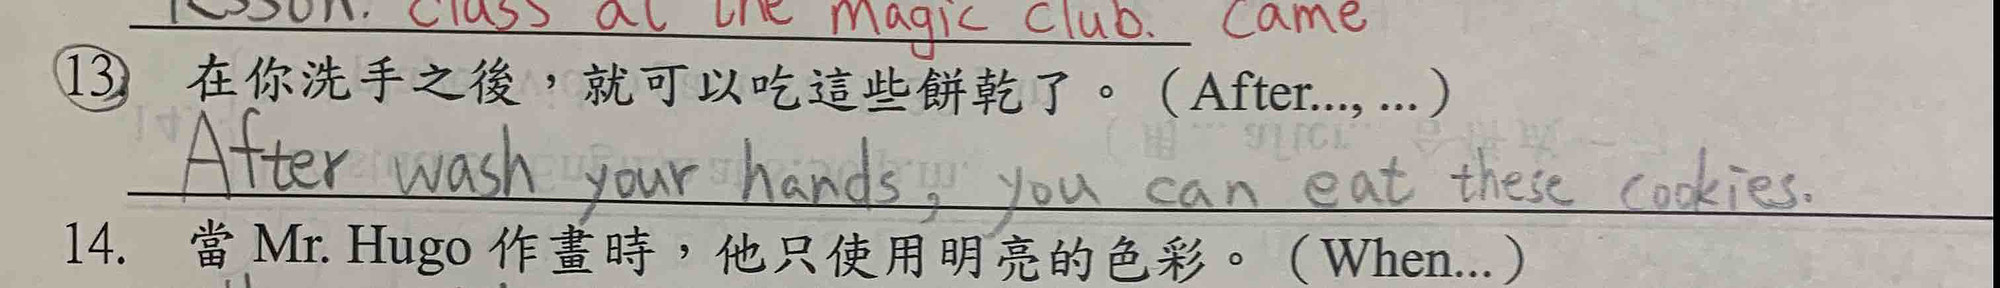 lesson. class at the magic club. came
13. 在你洗手之後，就可以吃這些餅乾了。（After..., ...）
After wash your hands, you can eat these cookies.
14. 當 Mr. Hugo 作畫時，他只使用明亮的色彩。（When...）